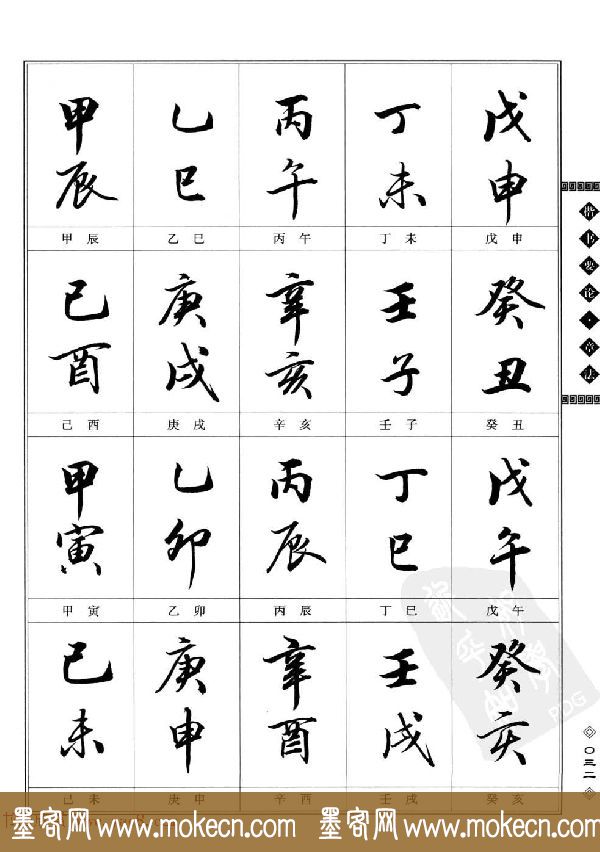 甲辰 乙巳 丙午 丁未 戊申
甲辰 乙巳 丙午 丁未 戊申
己酉 庚戌 辛亥 壬子 癸丑
己酉 庚戌 辛亥 壬子 癸丑
甲寅 乙卯 丙辰 丁巳 戊午
甲寅 乙卯 丙辰 丁巳 戊午
己未 庚申 辛酉 壬戌 癸亥
己未 庚申 辛酉 壬戌 癸亥
楷书要论·章法
〇三二
PDG
墨客网 www.mokecn.com 墨客网 www.mokecn.com